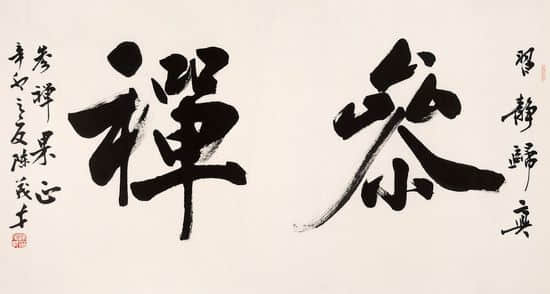 習靜歸真
叅禪
参禪果正
辛卯之夏陳義